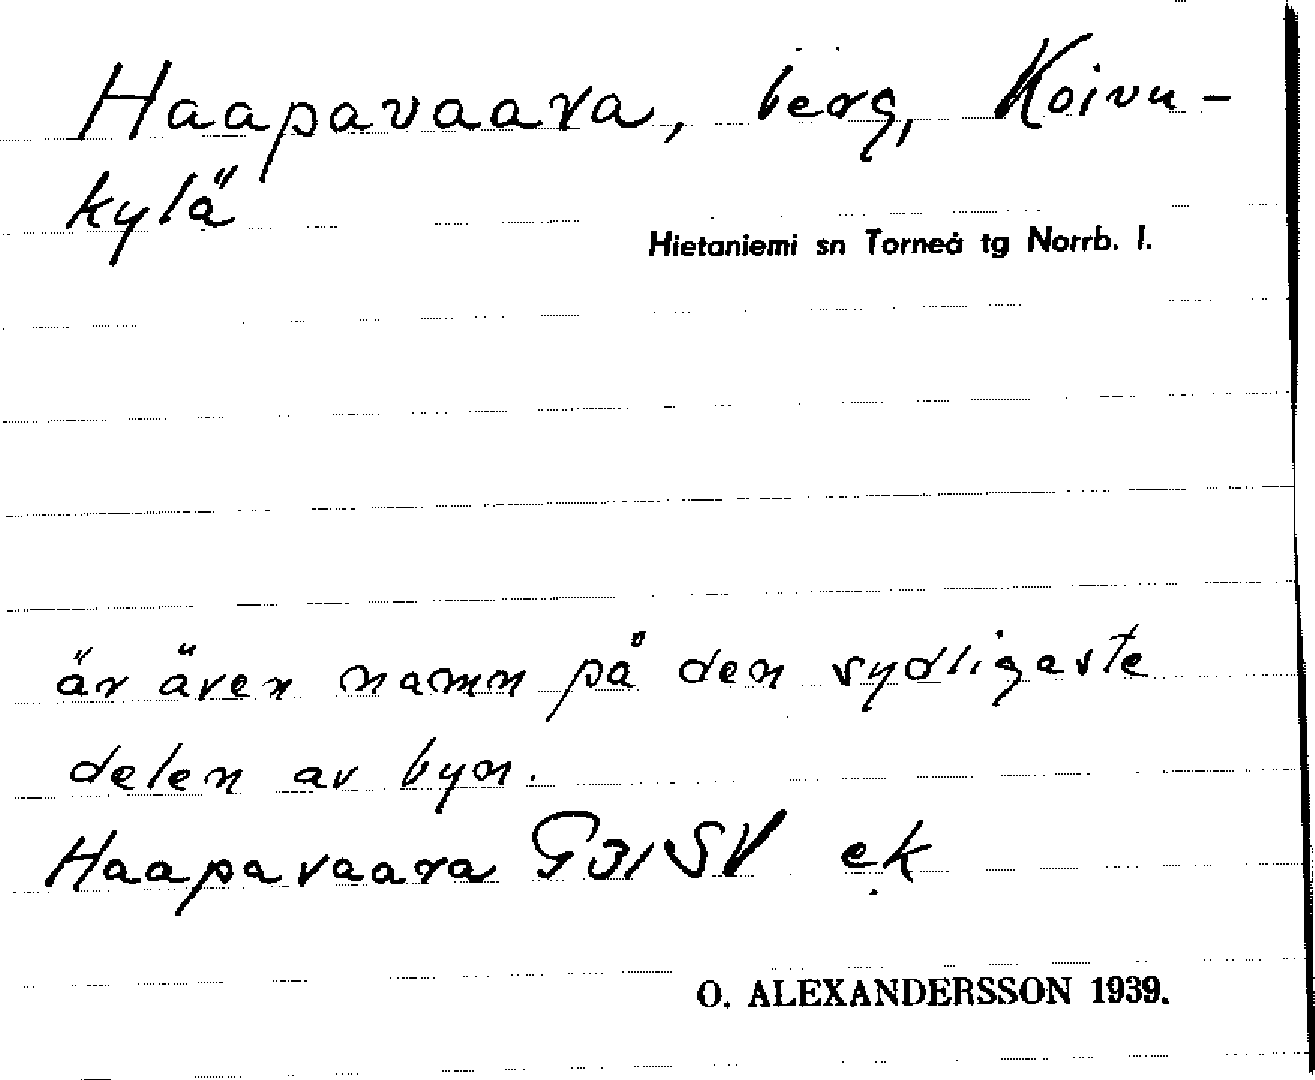 Haapavaara, berg, Koivu-
kylä
Hietaniemi sn Torneå tg Norrb. l.
är även namn på den sydligaste
delen av byn.
Haapavaara G31SV ek
O. ALEXANDERSSON 1939.